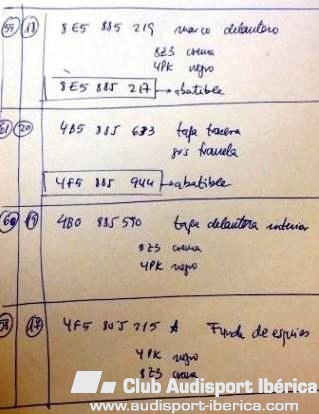 59 18 8E5 885 219 marco delantero
8Z3 crema
4PK negro
8E5 885 217 → abatible
61 20 4B5 885 683 tapa trasera
gris franela
4F5 885 944 → abatible
60 19 4B0 885 590 tapa delantera interior
8Z3 crema
4PK negro
58 17 4F5 885 215 A Funda de esquies
4PK negro
8Z3 crema
Club Audisport Ibérica
www.audisport-iberica.com